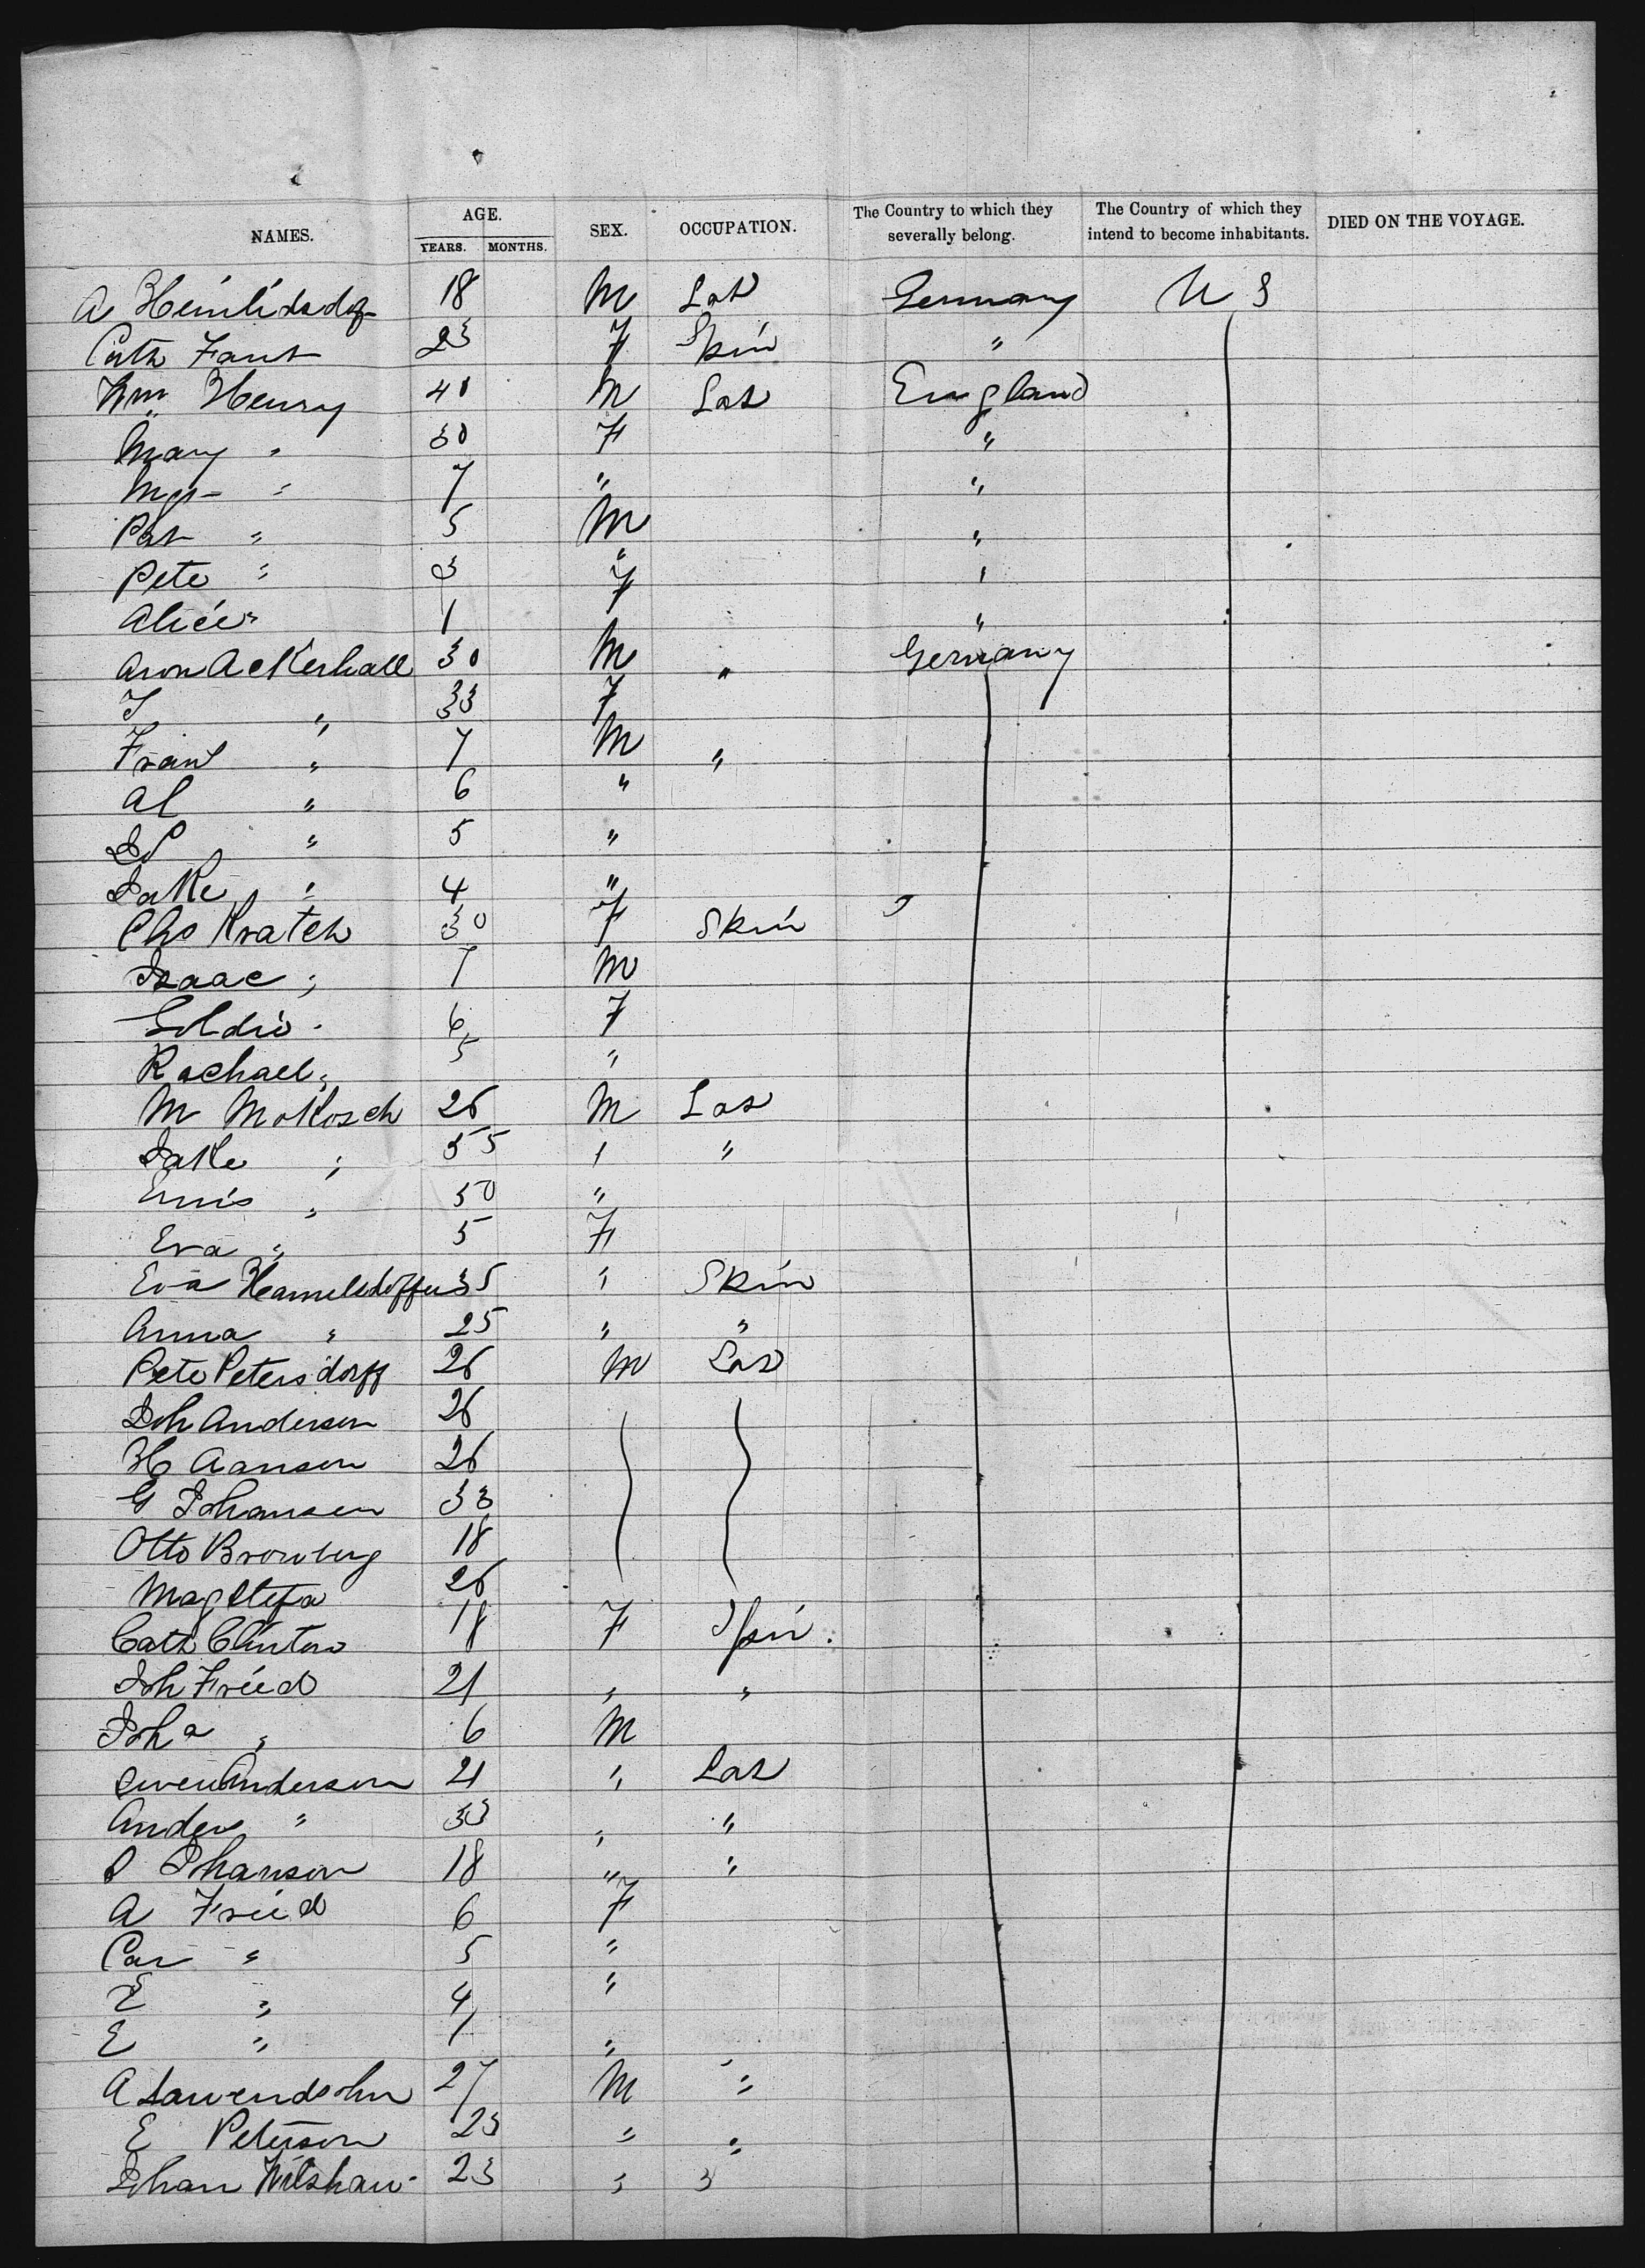 NAMES. AGE. YEARS. MONTHS. SEX. OCCUPATION. The Country to which they severally belong. The Country of which they intend to become inhabitants. DIED ON THE VOYAGE.
A 18 M Lab Germany U S
Cath Faust 23 F Spin "
Wm Henry 40 M Lab England
Mary " 30 F "
Mgt " 7 " "
Pat " 5 M "
Pete " 3 " '
Alice " 1 F "
Aron Ackerhall 30 M " Germany
J " 33 F
Frank " 7 M "
Al " 6 "
" 5 "
Jake " 4 "
Chs Kratch 30 F Skin
Isaac " 7 M
Goldie " 6 F
Rachael " 5 "
M Mokosch 26 M Lab
Jake " 55 " "
" 50 "
Eva " 5 F
Eva 35 " Skin
Anna " 25 " "
Pete Petersdorff 26 M Lab
Joh Anderson 26
H Aanson 26
G Johansen 33
Otto 18
Mag 26
Cath Clinton 18 F Spin.
Joh Fried 21 " "
Joha " 6 M
Anderson 21 " Lab
Anders " 33 " "
Johanson 18 " "
A Fried 6 F
Car " 5 "
E " 4 "
E " 1 "
A 27 M "
E Peterson 23 " "
Johan 23 " "